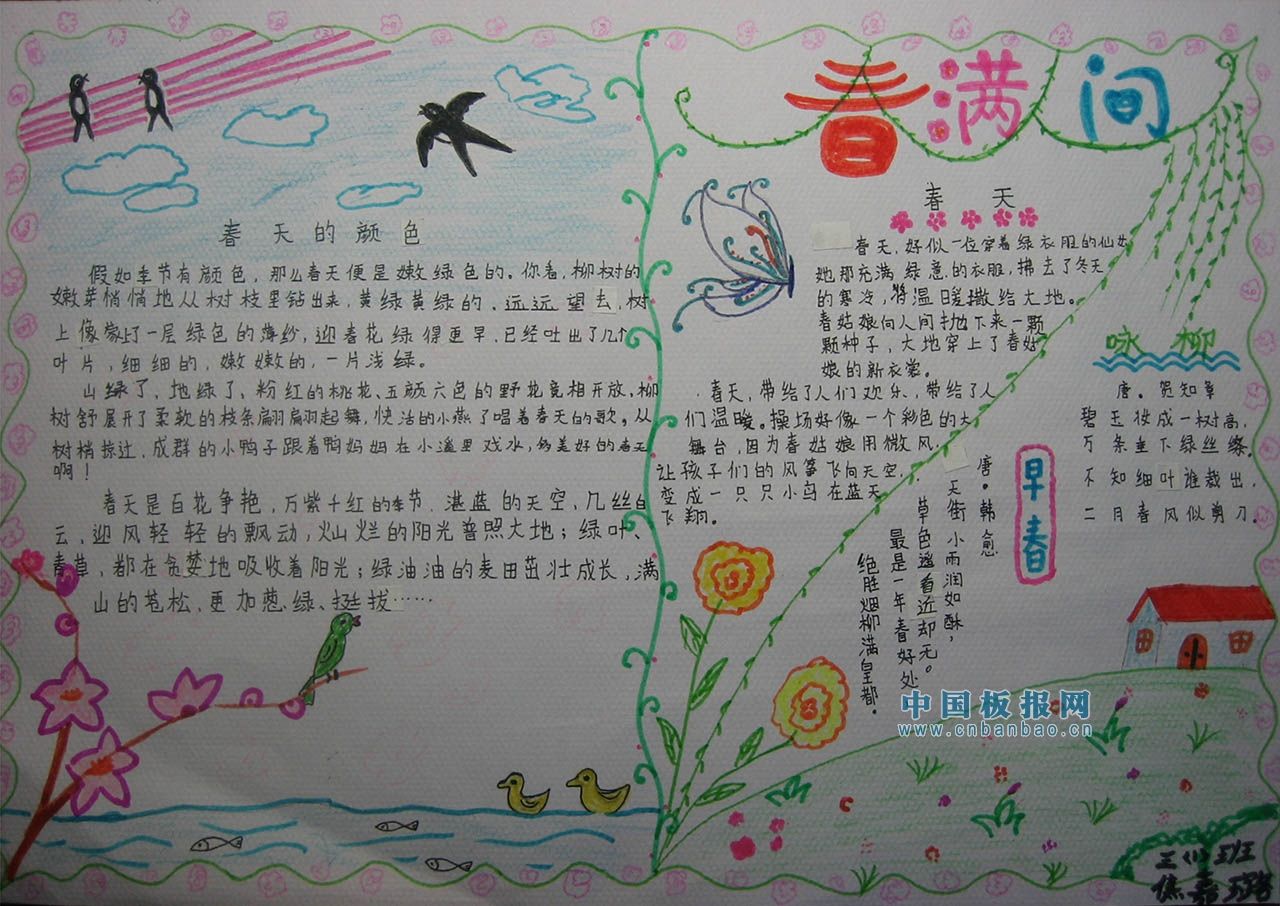 春天的颜色
假如季节有颜色,那么春天便是嫩绿色的。你看,柳树的
嫩芽悄悄地从树枝里钻出来,黄绿黄绿的,远远望去,树
上像蒙了一层绿色的薄纱,迎春花绿得更早,已经吐出了几个
叶片,细细的,嫩嫩的,一片浅绿。
山绿了,地绿了,粉红的桃花、五颜六色的野花竞相开放,柳
树舒展开了柔软的枝条翩翩起舞,快活的小燕了唱着春天的歌。从
树梢掠过,成群的小鸭子跟着鸭妈妈在小溪里戏水,多美好的春天
啊!
春天是百花争艳,万紫千红的季节,湛蓝的天空,几丝白
云,迎风轻轻的飘动,灿烂的阳光普照大地;绿叶、
青草,都在贪婪地吸收着阳光;绿油油的麦田茁壮成长,满
山的苍松,更加葱绿、挺拔……
春满间
春天
春天,好似一位穿着绿衣服的仙女
她那充满绿意的衣服,拂去了冬天
的寒冷,将温暖撒给大地。
春姑娘向人间抛下来一颗
颗种子,大地穿上了春姑
娘的新衣裳。
春天,带给了人们欢乐,带给了人
们温暖。操场好像一个彩色的大
舞台,因为春姑娘用微风,
让孩子们的风筝飞向天空,
变成一只只小鸟在蓝天
飞翔。
咏柳
唐。贺知章
碧玉妆成一树高,
万条垂下绿丝绦。
不知细叶谁裁出,
二月春风似剪刀。
早春
唐。韩愈
天街小雨润如酥,
草色遥看近却无。
最是一年春好处
绝胜烟柳满皇都。
中国板报网
www.cnbanbao.cn
三(1)班